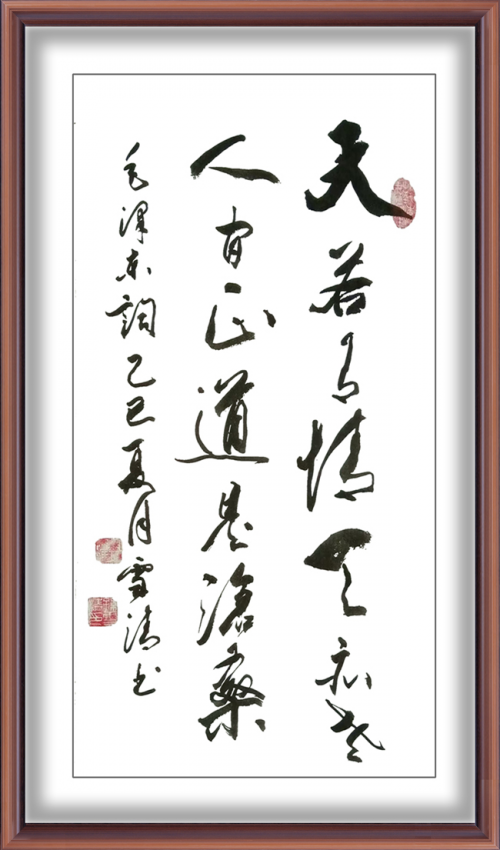 天若有情天亦老
人間正道是滄桑
毛澤東詞乙巳夏月雪清书